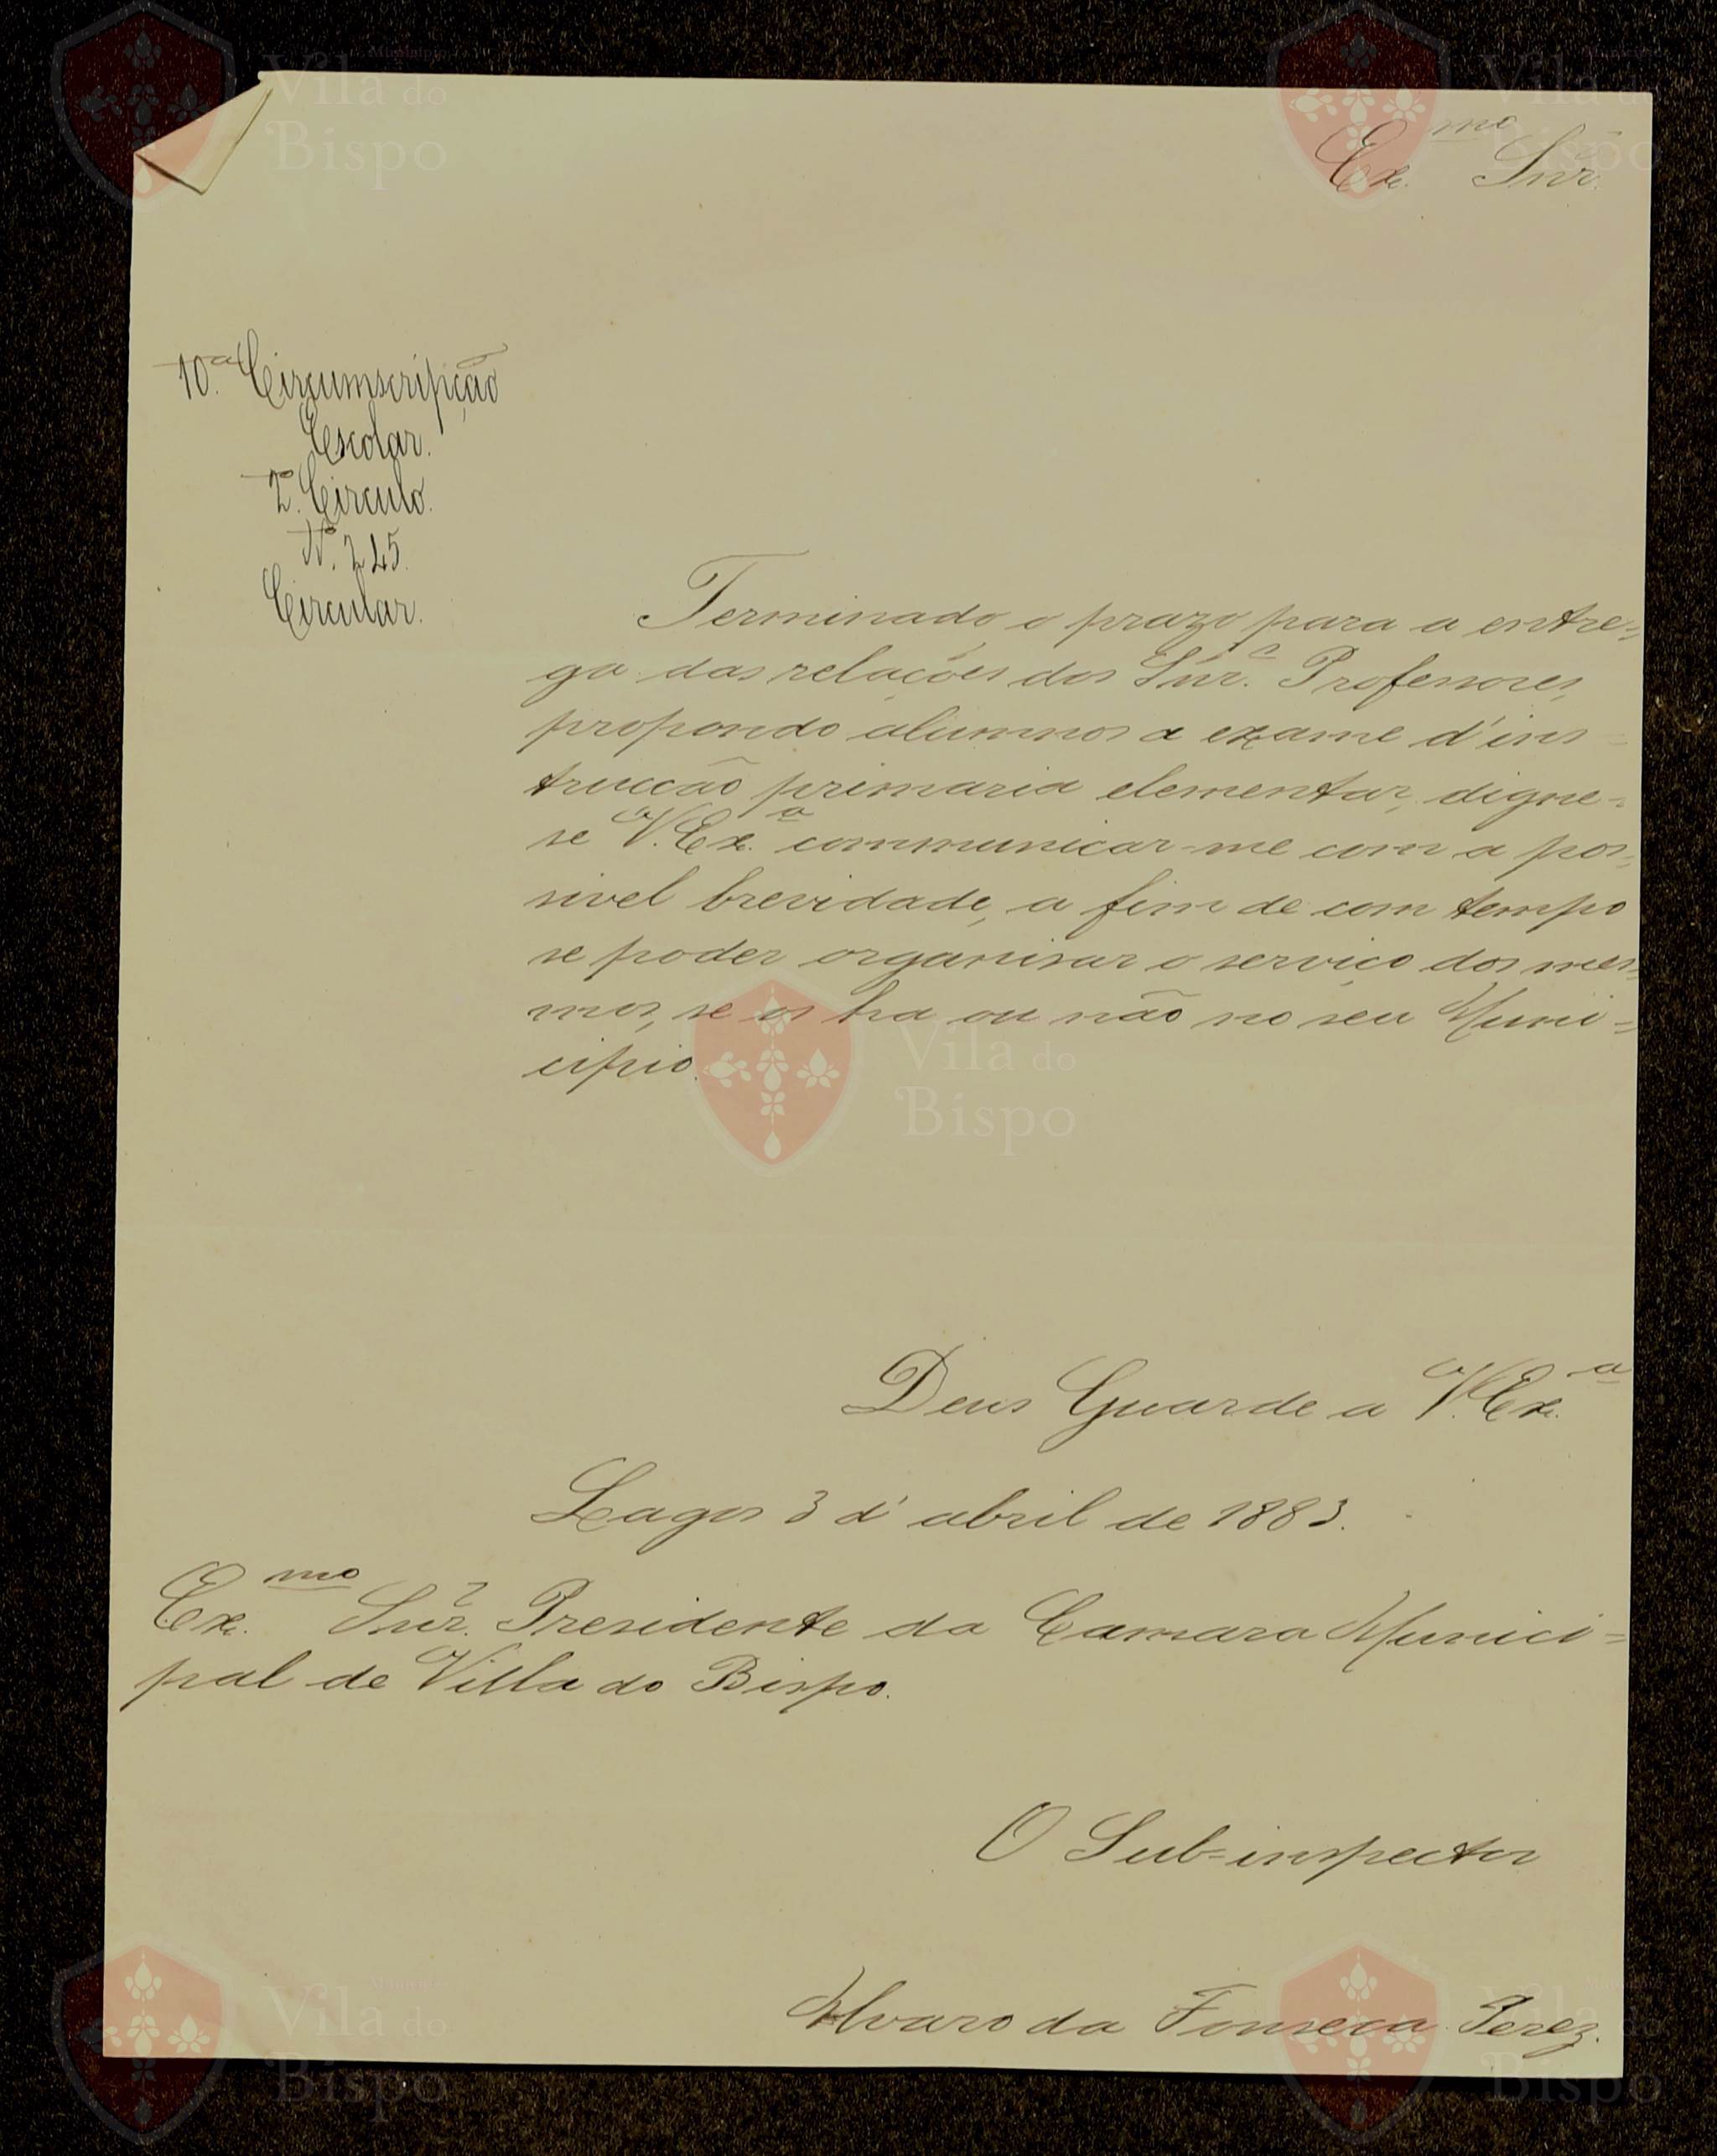 Ex.mo Snr.
10.ª Circumscripção
Escolar.
2.º Circulo.
N.º 245.
Circular.
Terminado o prazo para a entre=
ga das relações dos Snr.s Professores,
propondo alumnos a exame d'ins=
trucção primaria elementar, digne-
se V. Ex.a communicar-me com a pos=
sivel brevidade, a fim de com tempo
se poder organisar o serviço dos mes=
mos, se os ha ou não no seu Muni=
cipio.
Deus Guarde a V. Ex.a
Lagos 3 d'abril de 1883.
Ex.mo Snr. Presidente da Camara Munici=
pal de Villa do Bispo.
O Sub=inspector
Alvaro da Fonseca Perez.
Município
Vila do
Bispo
Vila do
Bispo
Vila do
Bispo
Município
Vila do
Bispo
Vila do
Bispo